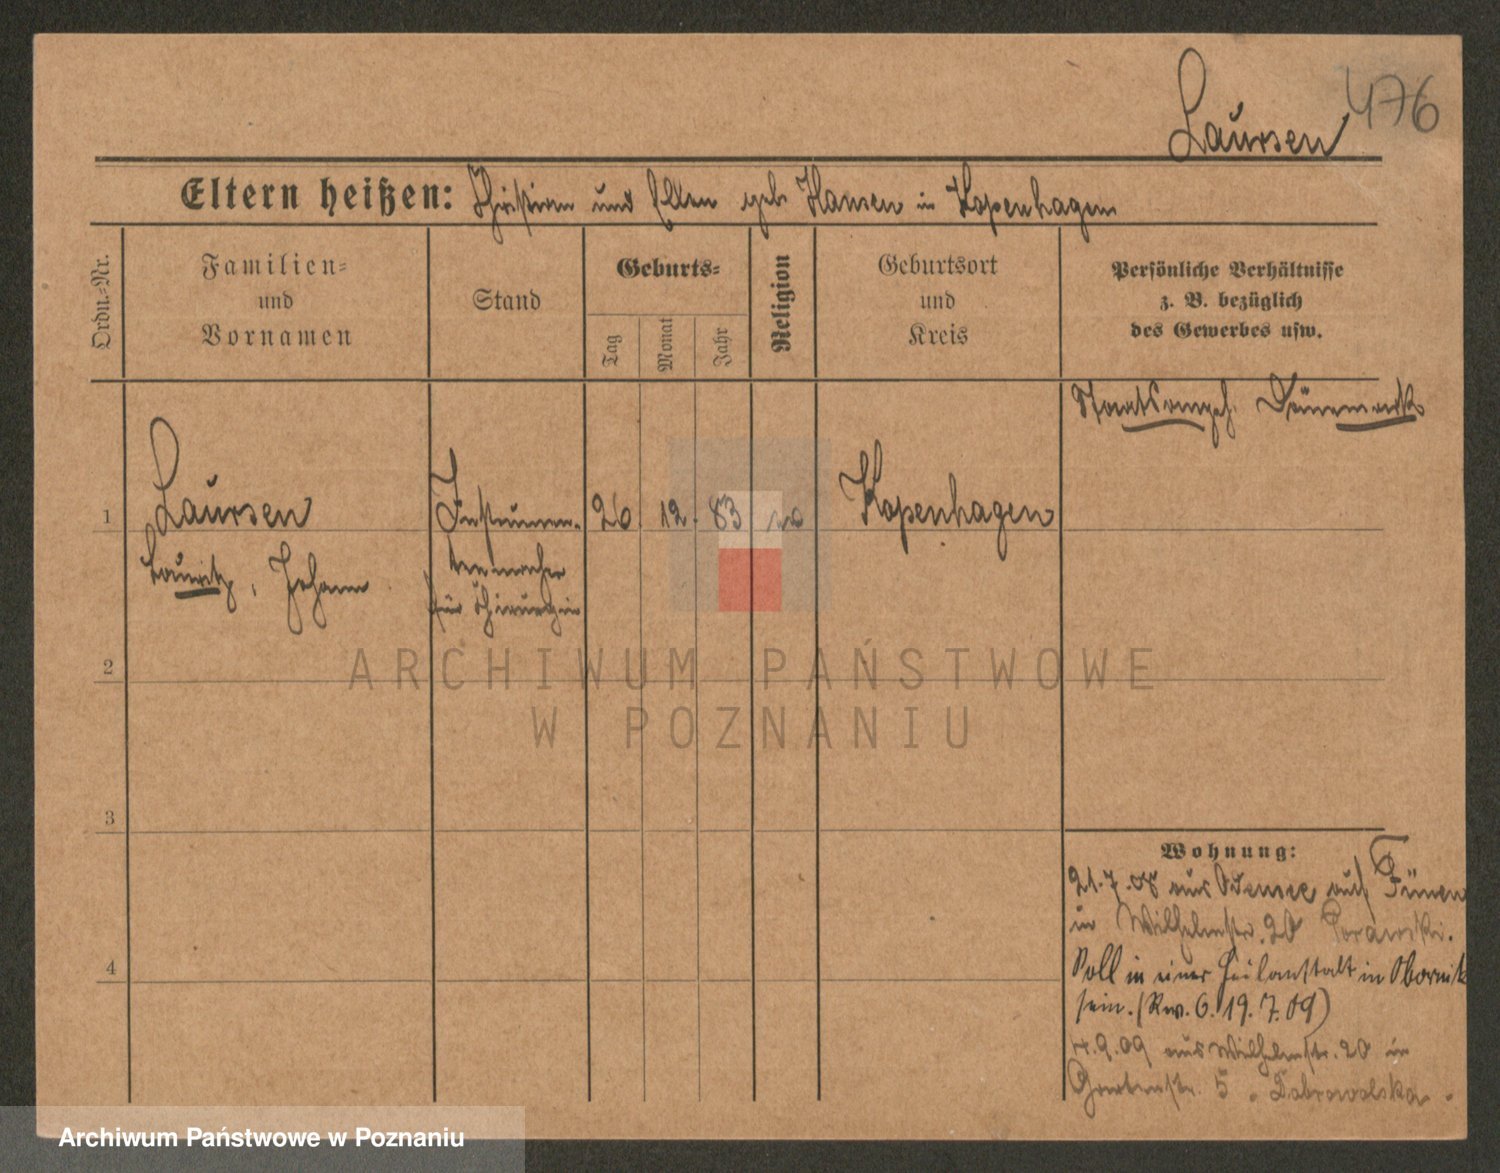 476
Laursen
Eltern heißen: Christian und Ellen geb. Hansen in Kopenhagen
Ordn.-Nr.
Familien-
und
Vornamen
Stand
Geburts-
Tag
Monat
Jahr
Religion
Geburtsort
und
Kreis
Persönliche Verhältnisse
z. B. bezüglich
des Gewerbes usw.
Staatsangeh. Dänemark
1 Laursen Instrumen- 26. 12. 83 Kopenhagen
Lauritz, Johann
tenmacher
für Chirurgie
ARCHIWUM PAŃSTWOWE
W POZNANIU
2
3
4
Wohnung:
21.7.08 aus Odense auf Fünen
in Wilhelmstr. 20
Soll in einer Heilanstalt in Obornik
sein. (Rev. 6. 19.7.09)
4.9.09 aus Wilhelmstr. 20 in
Gartenstr. 5 Dobrowolska
Archiwum Państwowe w Poznaniu